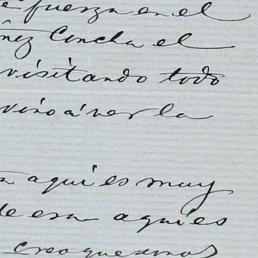 fuerza en el
Concha el
visitando todo
vino á ver la
aqui es muy
de esa aqui es
creo que